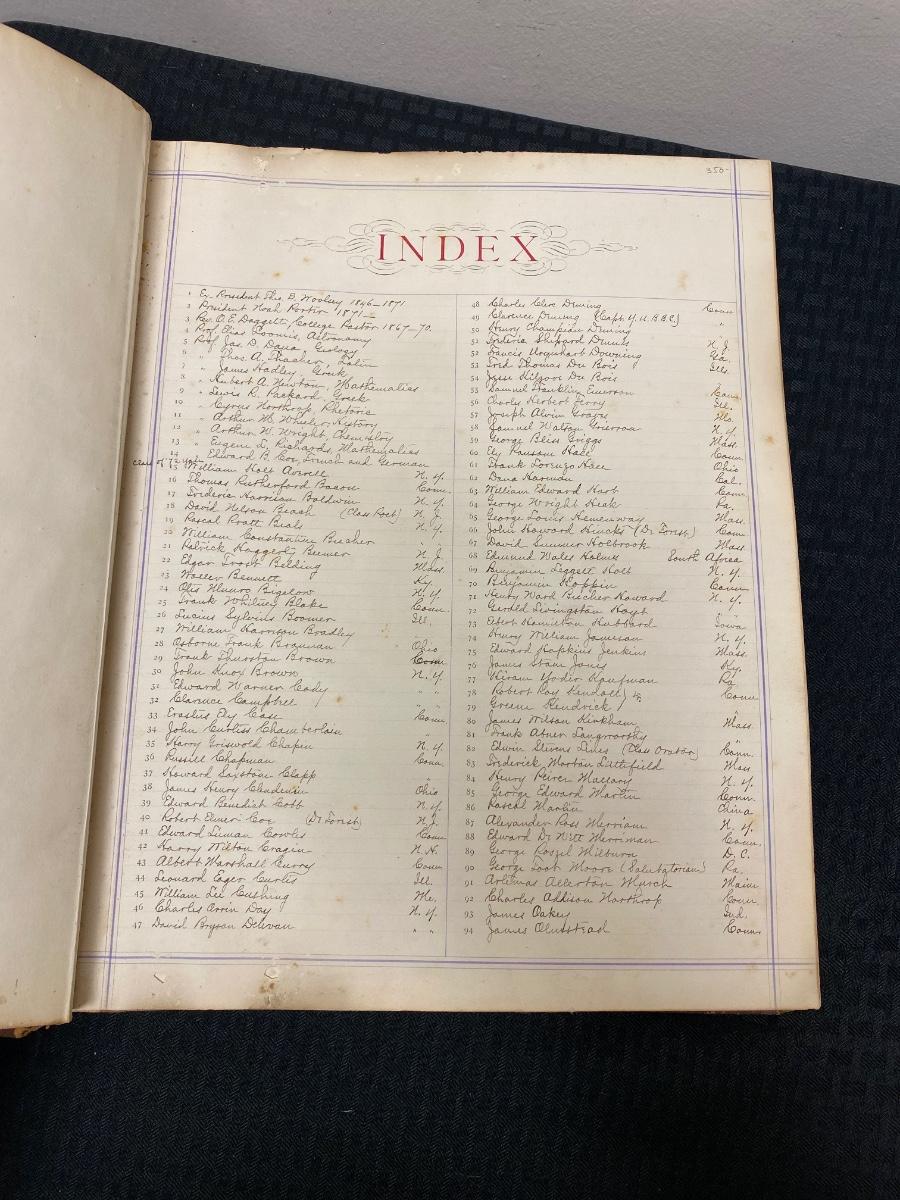 350-
INDEX
1 Ex-President Theo. D. Woolsey 1846-1871
2 President Noah Porter 1871-
3 Rev. O. E. Daggett, College Pastor 1867-70.
4 Prof. Elias Loomis, Astronomy
5 Prof. Jas. D. Dana Geology
6 " Thos. A. Thacher, Latin
7 " James Hadley, Greek
8 " Hubert A. Newton, Mathematics
9 " Lewis R. Packard, Greek
10 " Cyrus Northrop, Rhetoric
11 " Arthur M. Wheeler, History
12 " Arthur W. Wright, Chemistry
13 " Eugene L. Richards, Mathematics
14 " Edward B. Coe, French and German
class of 72 Yale
15 William Holt Averell N. Y.
16 Thomas Rutherford Bacon Conn.
17 Frederic Harrison Baldwin N. Y.
18 David Nelson Beach (Class Poet) N. J.
19 Rascal Pratt Beals N. Y.
20 William Constantine Beecher "
21 Patrick Haggerty Beemer N. J.
22 Edgar Frost Belding Mass.
23 Waller Bennett Ky.
24 Otis Munro Bigelow N. Y.
25 Frank Whitney Blake Conn.
26 Lucius Sylvius Boomer Ill.
27 William Harrison Bradley "
28 Osborne Frank Ohio
29 Frank Thurston Brown Conn.
30 John Knox Brown N. Y.
31 Edward Warner Cady " "
32 Clarence Campbell " "
33 Erastus Ely Case Conn
34 John Curtiss Chamberlain "
35 Harry Griswold Chapin N. Y.
36 Russell Chapman Conn.
37 Howard Clapp "
38 James Henry Ohio
39 Edward Benedict Cobb N. Y.
40 Robert Elmer Coe (De Forest) N. J.
41 Edward Titman Cowles Conn
42 Harry Wilton Cragin N. H.
43 Albert Marshall Curry Conn
44 Leonard Eager Curtis Ill.
45 William Lee Cushing Me.
46 Charles Orrin Day N. Y.
47 David Bryson Delavan " "
48 Charles Clere Deming Conn
49 Clarence Deming (Capt. Y. U. B.B.C.) "
50 Henry Champion Deming "
51 Frederic Sheppard Dennis N. J.
52 Francis Urquhart Downing Ga.
53 Fred Thomas Du Bois Ills.
54 Jesse Kilgore Du Bois
55 Samuel Franklin Emerson Conn.
56 Charles Herbert Ferry Ill.
57 Joseph Alvin Graves Ills.
58 Samuel Walton Grierson N. Y.
59 George Bliss Griggs Mass.
60 Ely Ransom Hall Conn.
61 Frank Lorenzo Hall Ohio
62 Dana Harmon Cal.
63 William Edward Hart Conn.
64 George Wright Heak Pa.
65 George Louis Hemenway Mass.
66 John Howard Hincks (De Forest) Conn
67 David Sumner Holbrook Mass
68 Edmund Wales Holmes South Africa
69 Benjamin Leggett Holt N. Y.
70 Benjamin Hoppin Conn.
71 Henry Ward Beecher Howard N. Y.
72 Gerold Livingston Hoyt "
73 Elbert Hamilton Hubbard Iowa
74 Henry William Jameson N. Y.
75 Edward Hopkins Jenkins Mass.
76 James Stam Janis Ky.
77 Hiram Yoder Kaufman Pa
78 Robert Roy Kendall Conn
79 Greene Kendrick "
80 James Wilson Kirkham Mass.
81 Frank Abner Langworthy "
82 Edwin Stevens Lines (Class Orator) Conn.
83 Frederick Morton Littlefield Mass
84 Henry Peirce Mallory N. Y.
85 George Edward Martin Conn.
86 Pascal Martin China
87 Alexander Ross Merriam N. Y.
88 Edward De Witt Merriman Conn.
89 George Roszel Milburn D. C.
90 George Foot Moore (Salutatorian) Pa.
91 Artemas Allerton Murch Maine
92 Charles Addison Northrop Conn.
93 James Oakey Ind.
94 James Olmstead Conn.